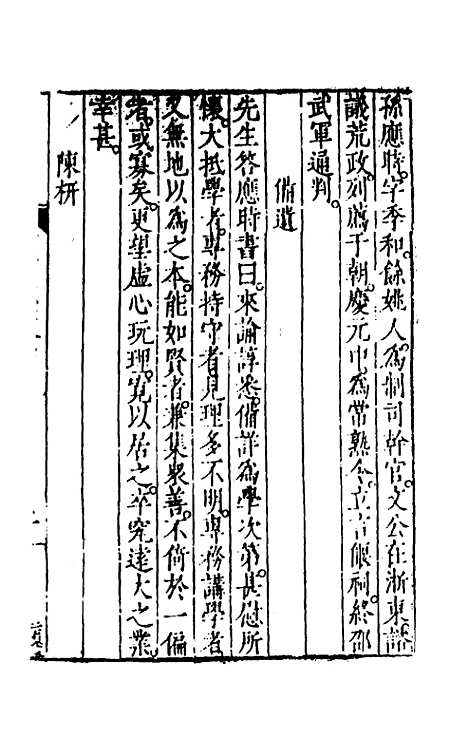 孫應時。字季和。餘姚人。為制司幹官。文公在浙東。諮
議荒政。列薦于朝。慶元中為常熟令。立言偃祠。終邵
武軍通判。
備遺
先生答應時書曰。來諭諄悉。備詳為學次第。甚慰所
懷。大抵學者。專務持守者。見理多不明。專務講學者。
又無地以為之本。能如賢者。兼集眾善。不倚於一偏
者。或寡矣。更望虛心玩理。寬以居之。卒究遠大之業。
幸甚。
陳枅